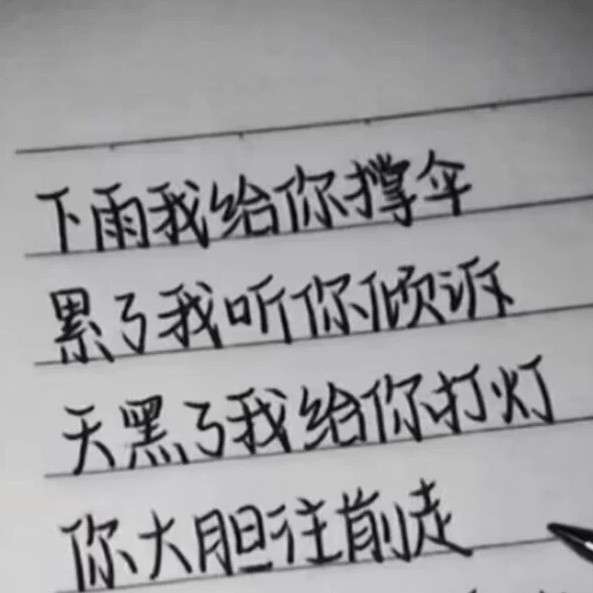 下雨我给你撑伞
累了我听你倾诉
天黑了我给你打灯
你大胆往前走